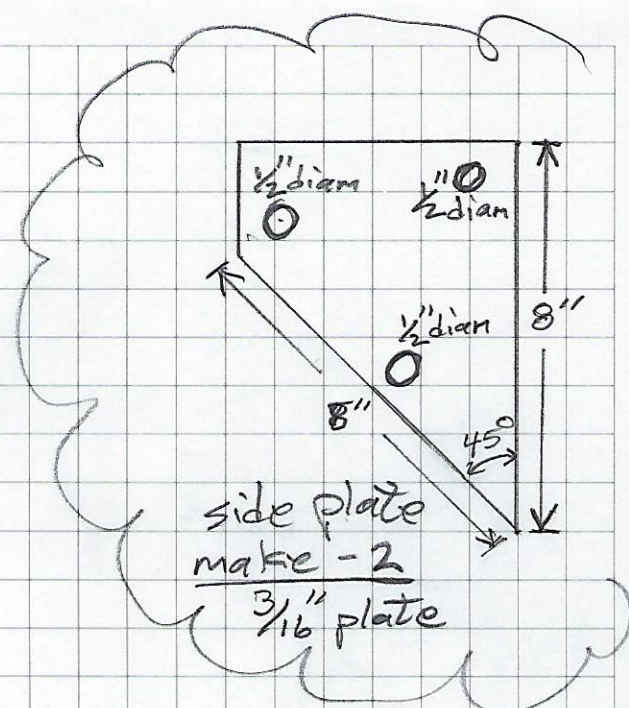 1/2" diam
1/2" diam
1/2" diam
8"
8"
45°
side plate
make - 2
3/16" plate